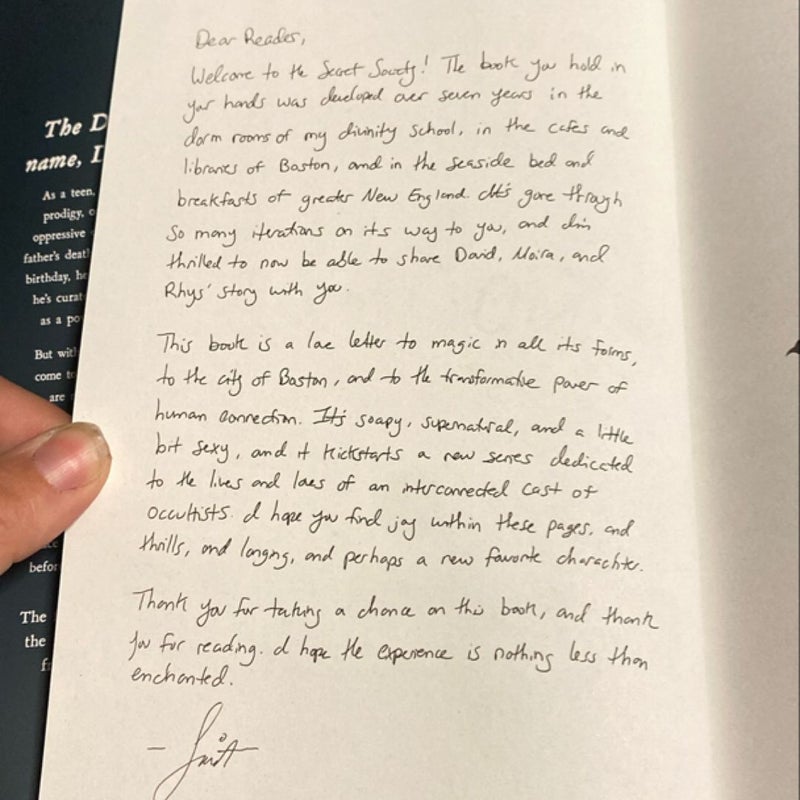 The D
name, I
As a teen,
prodigy, o
oppressive
father's deat
birthday, he
he's curat
as a po
But wit
come to
are
befor
The
the
f
Dear Reader,
Welcome to the Secret Society! The book you hold in
your hands was developed over seven years in the
dorm rooms of my divinity school, in the cafes and
libraries of Boston, and in the seaside bed and
breakfasts of greater New England. It's gone through
so many iterations on its way to you, and I'm
thrilled to now be able to share David, Moira, and
Rhys' story with you.
This book is a love letter to magic in all its forms,
to the city of Boston, and to the transformative power of
human connection. It's soapy, supernatural, and a little
bit sexy, and it kickstarts a new series dedicated
to the lives and loves of an interconnected cast of
occultists. I hope you find joy within these pages, and
thrills, and longing, and perhaps a new favorite charachter.
Thank you for taking a chance on this book, and thank
you for reading. I hope the experience is nothing less than
enchanted.